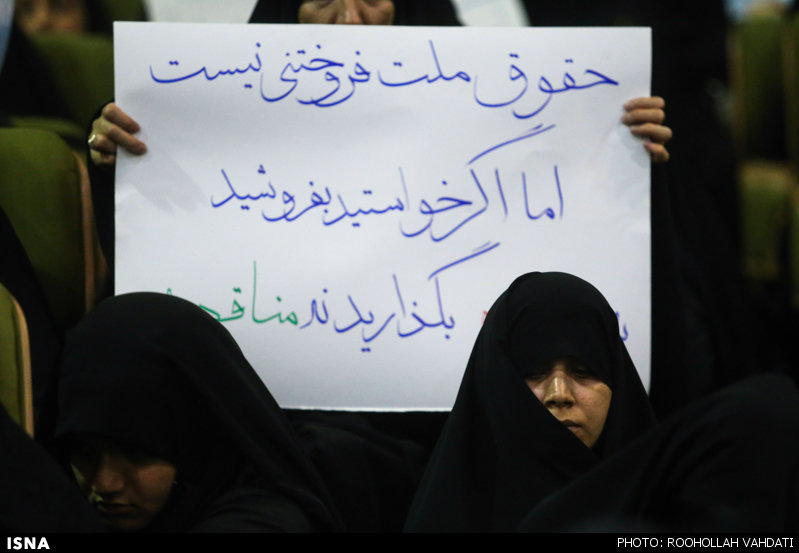 حقوق ملت فروختنی نیست
اما اگر خواستید بفروشید
بگذارید نه مناقصه
ISNA
PHOTO: ROOHOLLAH VAHDATI